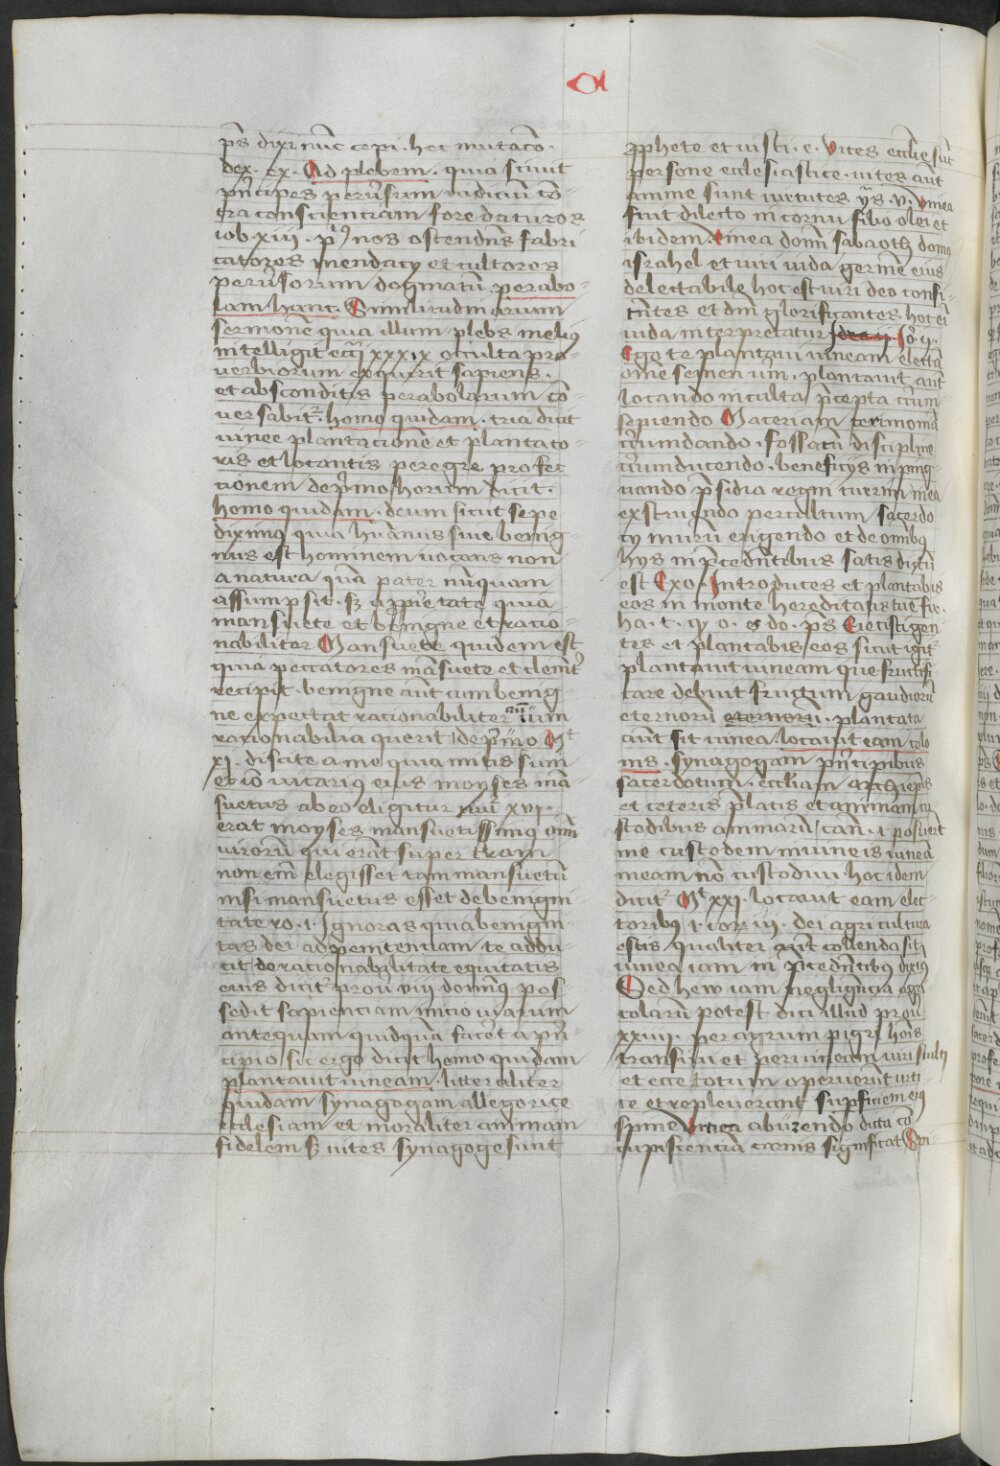 a
p̄s dixi nūc cepi. hec mutaco.
dex. ex. Ad plebem. quia sciuit
pⁱncipes peruersum iudiciū cō
tra conscienciam fore daturos
iob xiii. pⁱ nos ostendēs fabri
catores mendacij et cultores
peruersorum dogmatū parabo
lam hanc. Similitudinarium
sermonē quia illum plebs melius
intelligit ecci xxxix occulta pro
uerbiorum exquirit sapiens.
et absconditis parabolarum cō
uersabitr̄. homo quidam. tria dicit
uinee plantacionē et plantato
ris et locantis peregre profec
tionem de pⁱmo horum dicit.
homo quidam. deum sicut sepe
diximus quia hūanus siue benig
nus est hominem uocans non
a natura quā pater nūquam
assumpsit. sz a pprietate quia
mansuete et benigne et racio
nabiliter Mansuete quidem est
quia peccatores māsuete et clemēt
recipit. benigne aūt cum benig
ne expectat racionabiliter cum
racionabilia querit de pⁱmo Mᵗ
xi. discite a me quia mitis sum
et iō uicarius eius moyses mā
suetus ab eo eligitur nūi xvi.
erat moyses mansuetissimus oīm
uirorū qui erāt super terram
non em̄ elegisset tam mansuetū
nisi mansuetus esset de benigni
tate ro. i. Ignoras quia benigni
tas dei ad penitenciam te addu
cit de racionabilitate equitatis
eius dicitr̄ prou viii dominus pos
sedit sapienciam inicio uiarum
antequam quidquā facēt a pⁱn
cipio sic ergo dicit homo quidam
plantauit uineam. litteraliter
quidam synagogam allegorice
ecclesiam et moraliter animam
fidelem sz uites synagoge sunt
pphete et iusti. e. Vites ecclie sūt
persone ecclesiastice. uites aūt
anime sunt uirtutes ys. v. Vinea
fuit dilecto in cornu filio olei et
ibidem. Vinea domī sabaoth domus
israhel et uiri iuda germē eius
delectabile hoc est uiri deo confi
tētes et dm̄ glorificantes hoc em̄
iuda interpretatur
Ego te plantaui uineam electā
ome semen uer. plantauit aūt
locando in culta p̄cepta circum
sepiendo Maceriam cerimoniā
circumdando. fossatū discipline
circumducendo. beneficijs inping
uando p̄sidia regni turrim in ea
exstruendo percultum sacerdo
cij murū erigendo et de omibus
hijs in p̄cedētibus satis dictū
est Exo. Introduces et plantabis
eos in monte hereditatis tue fir.
ha. t. q. o. es do. ps Eiecisti gen
tes et plantabis eos sicut igitr̄
plantauit uineam que fructifi
care debuit fructum gaudiorū
eternorū eternorū. plantata
aūt sit uinea locauit eam colo
nis. synagogam pⁱncipibus
sacerdotum. eccliam archiep̄is
et ceteris p̄latis et animam cu
stodibus animarū can. i posuerūt
me custodem in uineis uineā
meam nō custodiui hoc idem
dicitr̄ Mᵗ xxi. locauit eam elec
toribus i. cor. iii. dei agricultura
estis qualiter aūt colenda sit
uinea iam in p̄cedētibus diximus
Sed hew iam negligēcia agri
colarū potest dici illud prou
xxiiii. per agrum pigri homīs
transiui et per uineam uiri stulti
et ecce totum operuerūt urti
ce et repleuerant supficiem eius
spine Vrtica ab urendo dicta cō
cupiscenciā carnis significat Spi